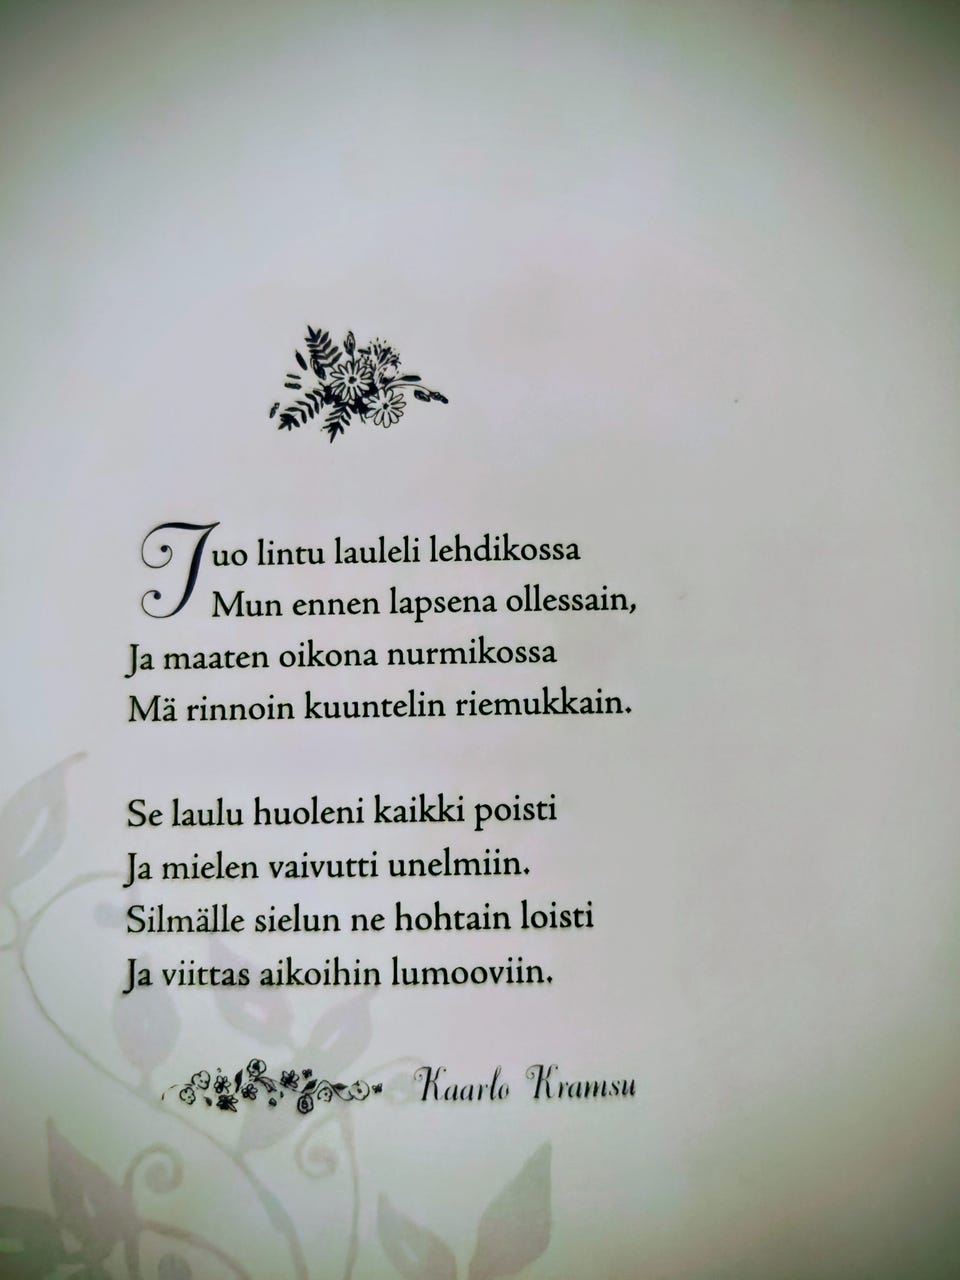 Tuo lintu lauleli lehdikossa
Mun ennen lapsena ollessain,
Ja maaten oikona nurmikossa
Mä rinnoin kuuntelin riemukkain.
Se laulu huoleni kaikki poisti
Ja mielen vaivutti unelmiin.
Silmälle sielun ne hohtain loisti
Ja viittas aikoihin lumooviin.
Kaarlo Kramsu